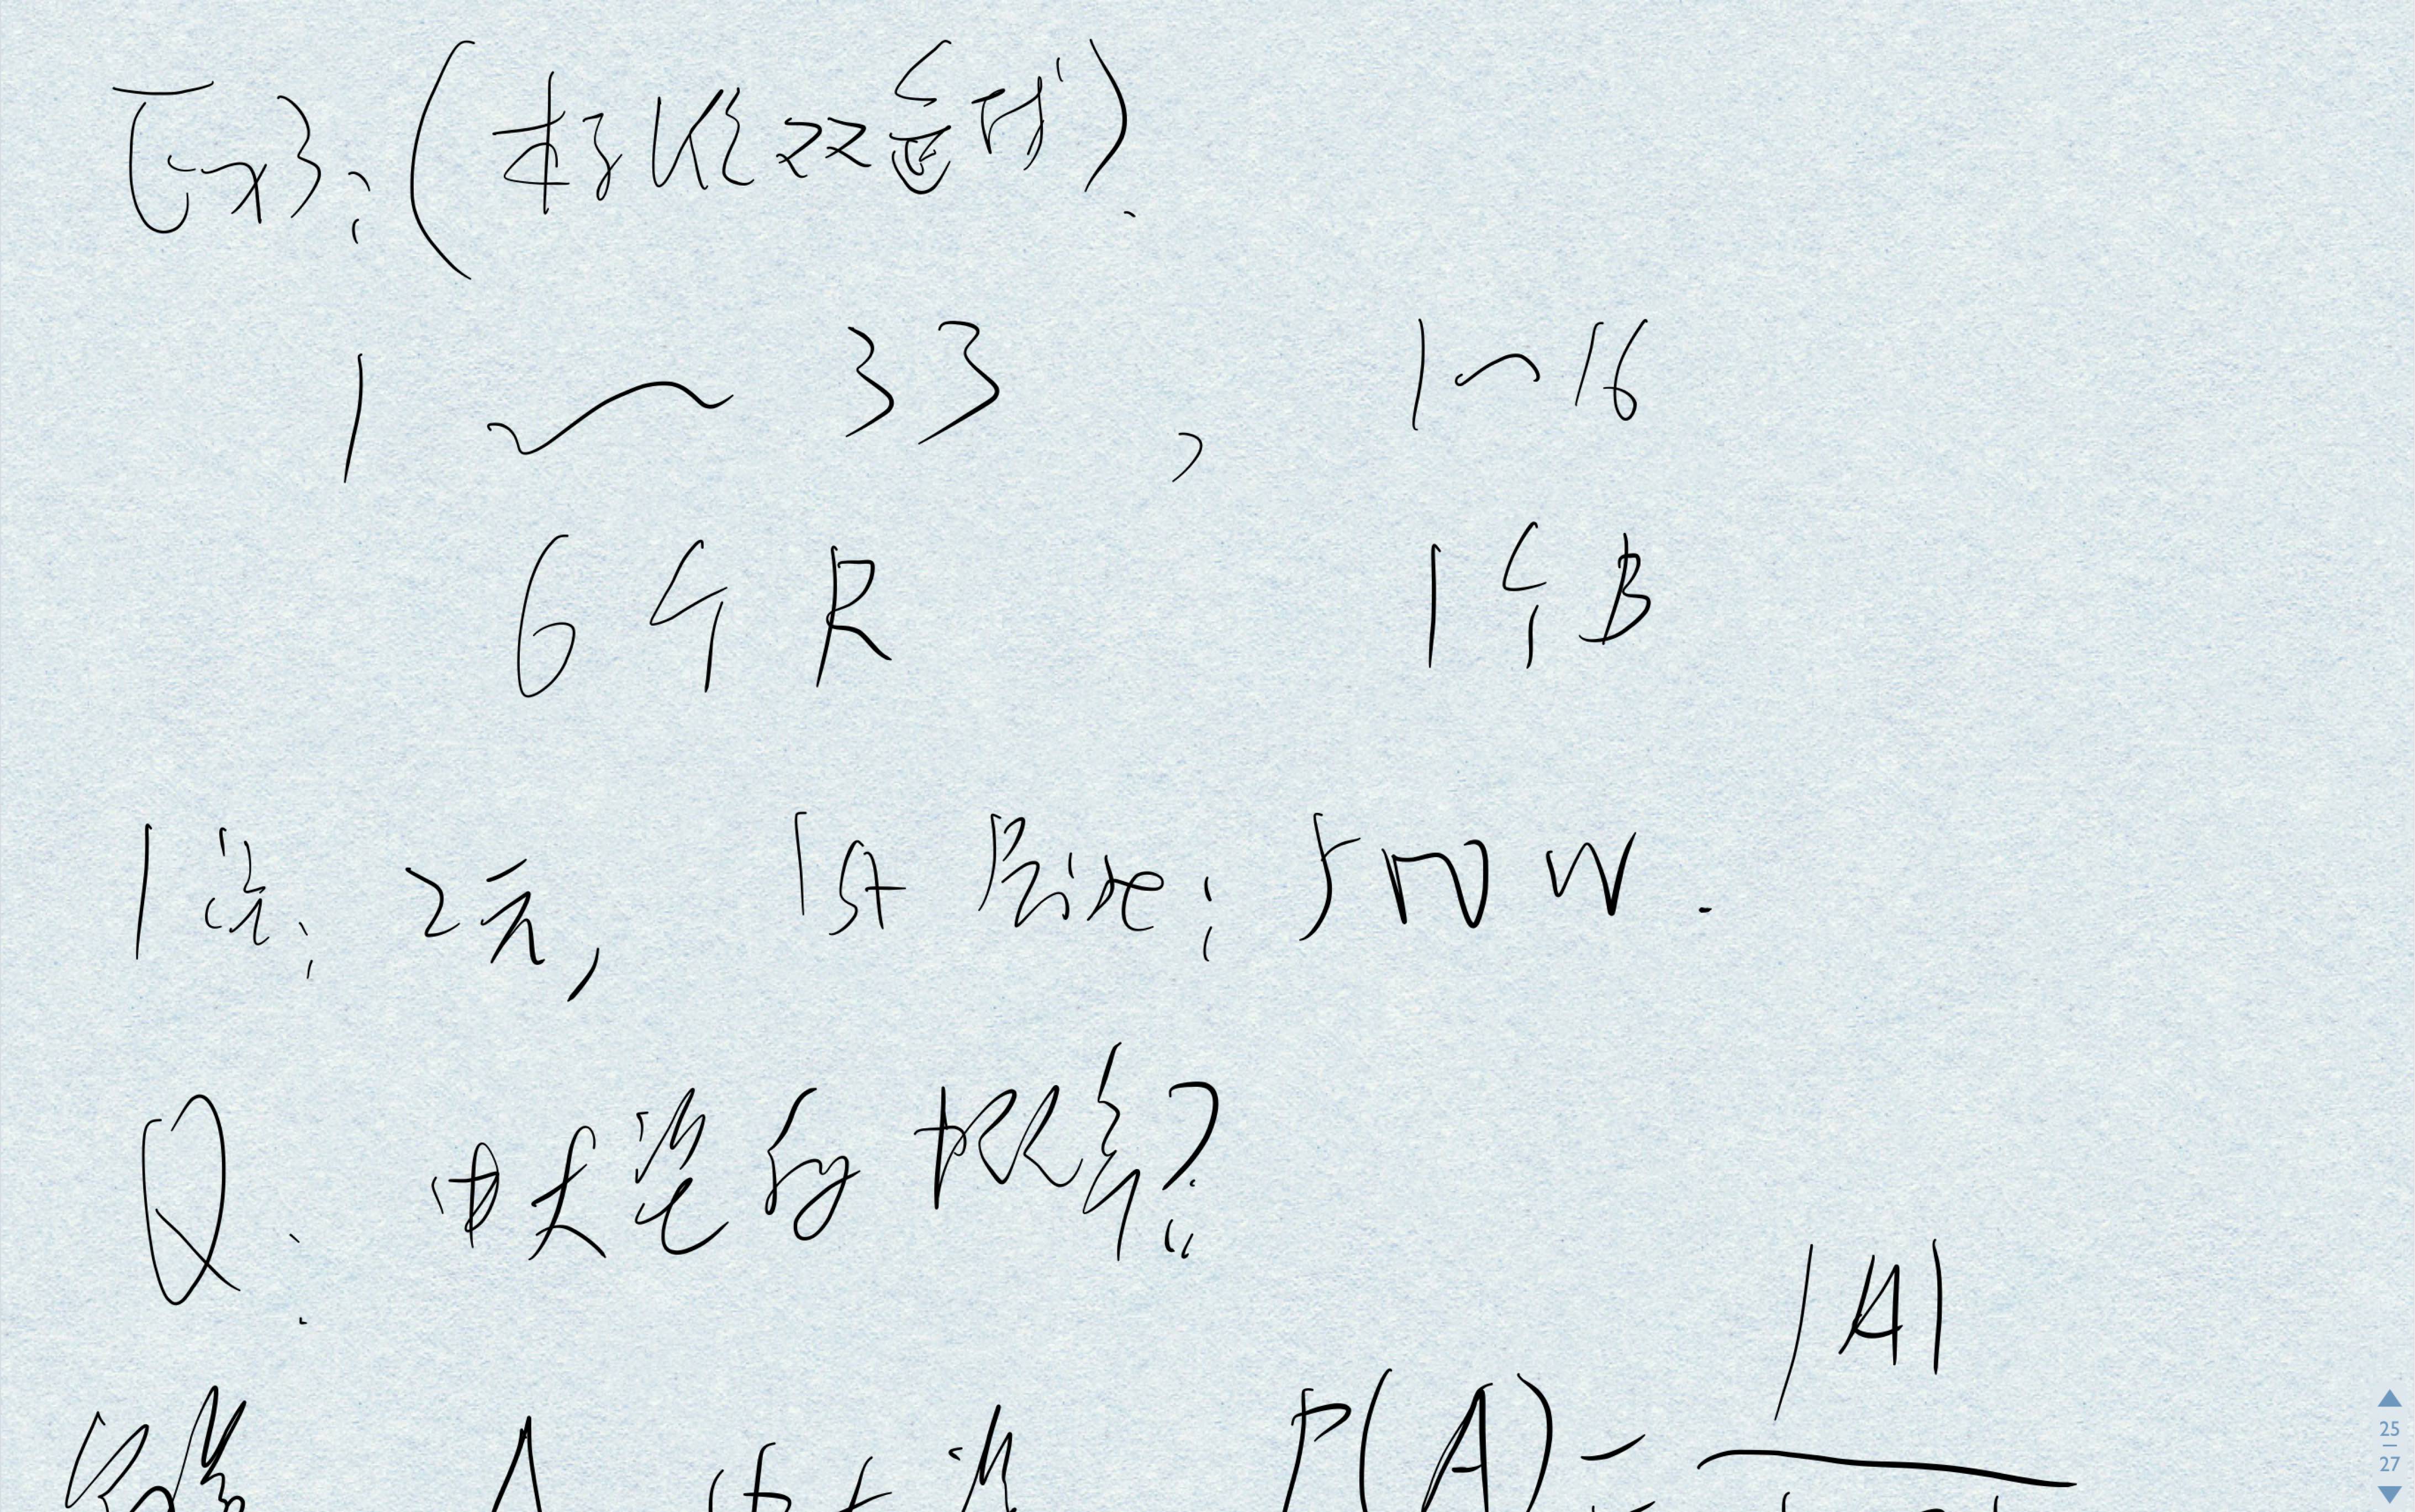 Ex3:(标准双色球).
1 ~ 33 , 1~16
6个R 1个B
1注: 2元, 1st 层次: 500 W.
Q: 中大奖的概率?
|A|
A 中大奖 P(A)=
25
27